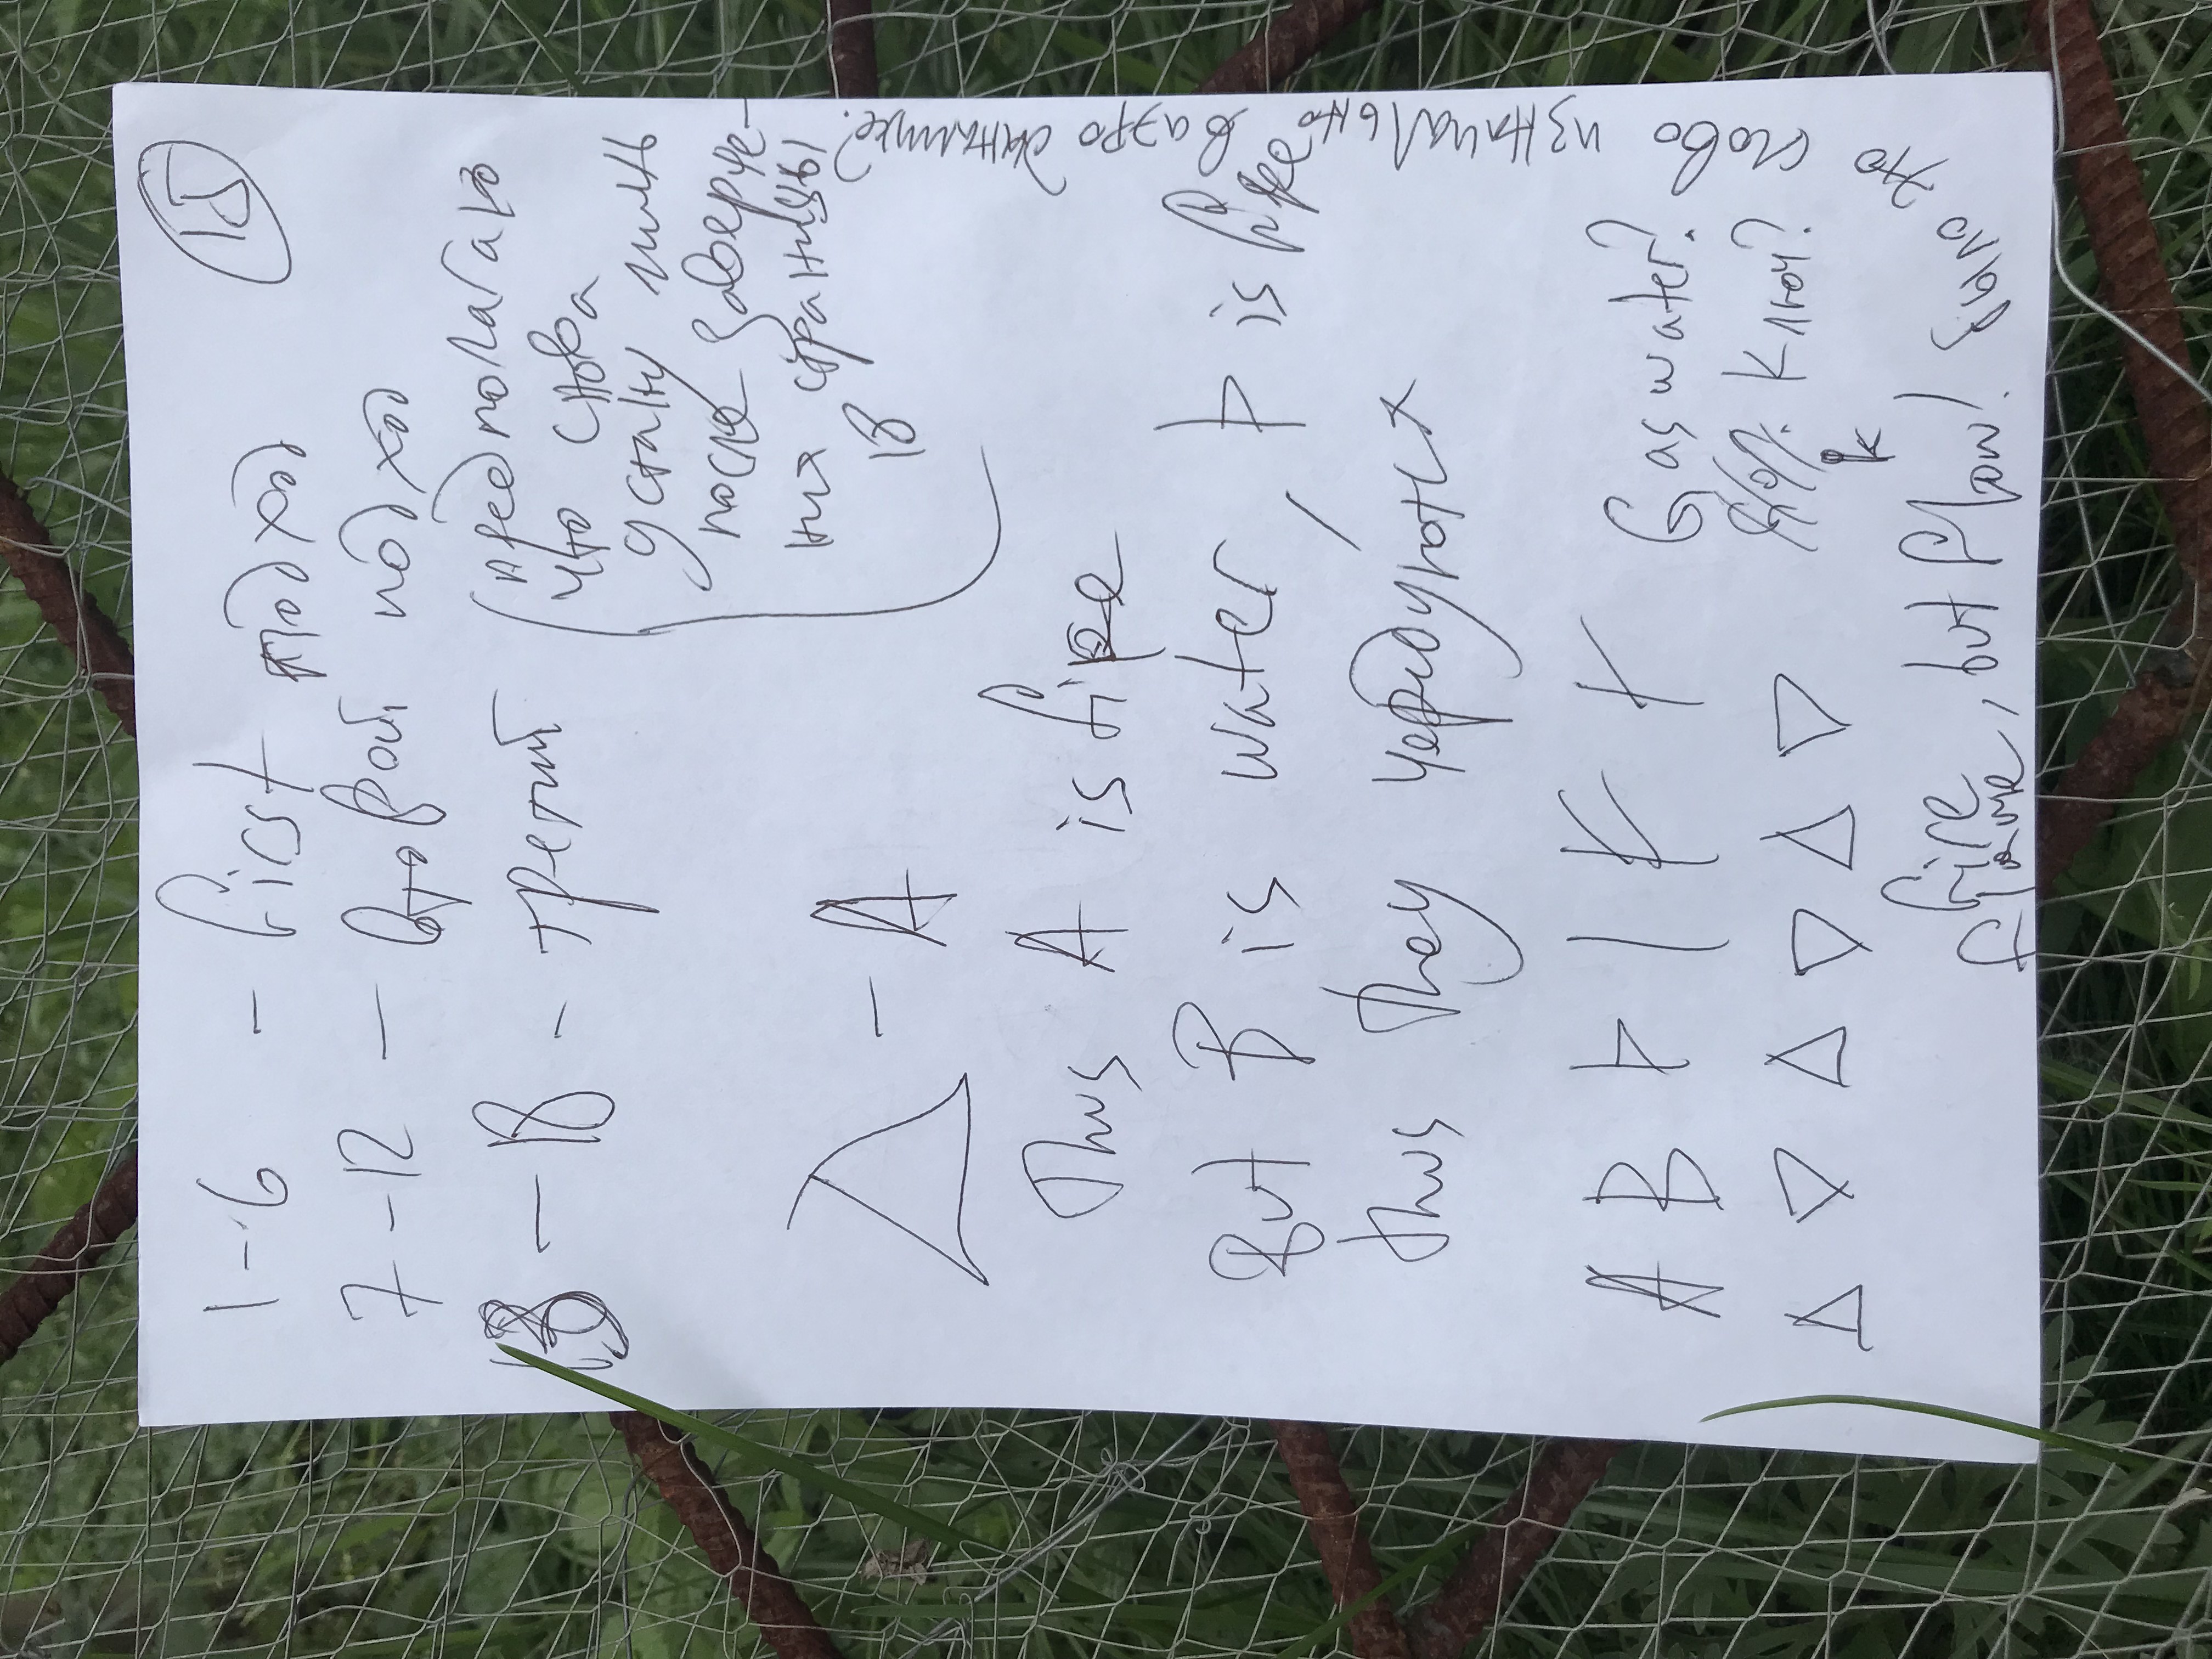 15
1-6 - first подход
7-12 - второй подход
13-18 - третий
(предполагаю
что снова
устану лишь
после заверше-
ния страницы
18
△ - A
Thus A is fire
But B is water, Ͱ is fire
thus they чередуются
A B Ͱ |
△ ▽ △ ▽ △ ▽
Gas water?
Ключ?
k
fire
flame, but flow!
было это слово изначально в аэродинамике?